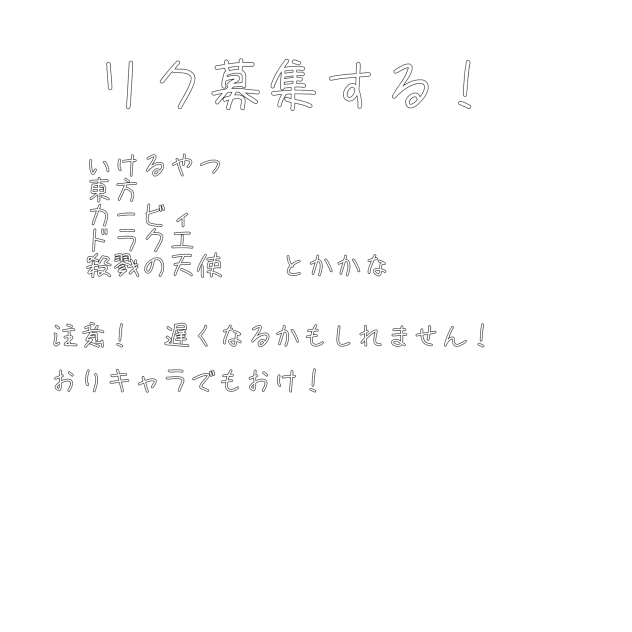 リク募集する！
いけるやつ
東方
カービィ
ドラクエ
殺戮の天使　　とかかな
注意！　遅くなるかもしれません！
おりキャラでもおけ！